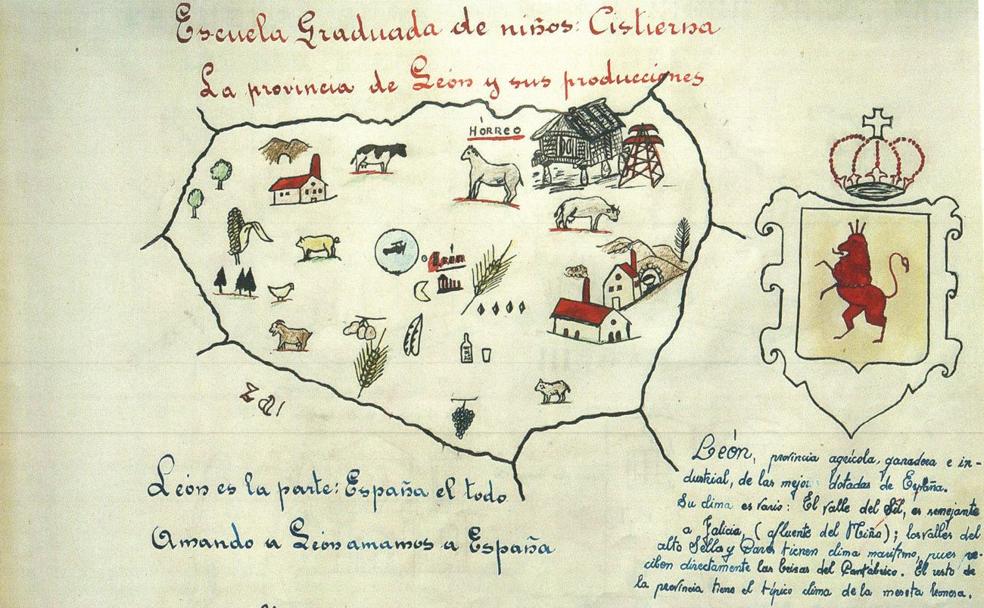 Escuela Graduada de niños: Cistierna
La provincia de León y sus producciones
HÓRREO
León
León es la parte: España el todo
Amando a León amamos a España
León, provincia agrícola, ganadera e in-
dustrial, de las mejor dotadas de España.
Su clima es vario: El valle del Sil, es semejante
a Galicia, (afluente del Miño); los valles del
alto Sella y Cares tienen clima marítimo, pues re-
ciben directamente las brisas del Cantábrico. El resto de
la provincia tiene el típico clima de la meseta leonesa.